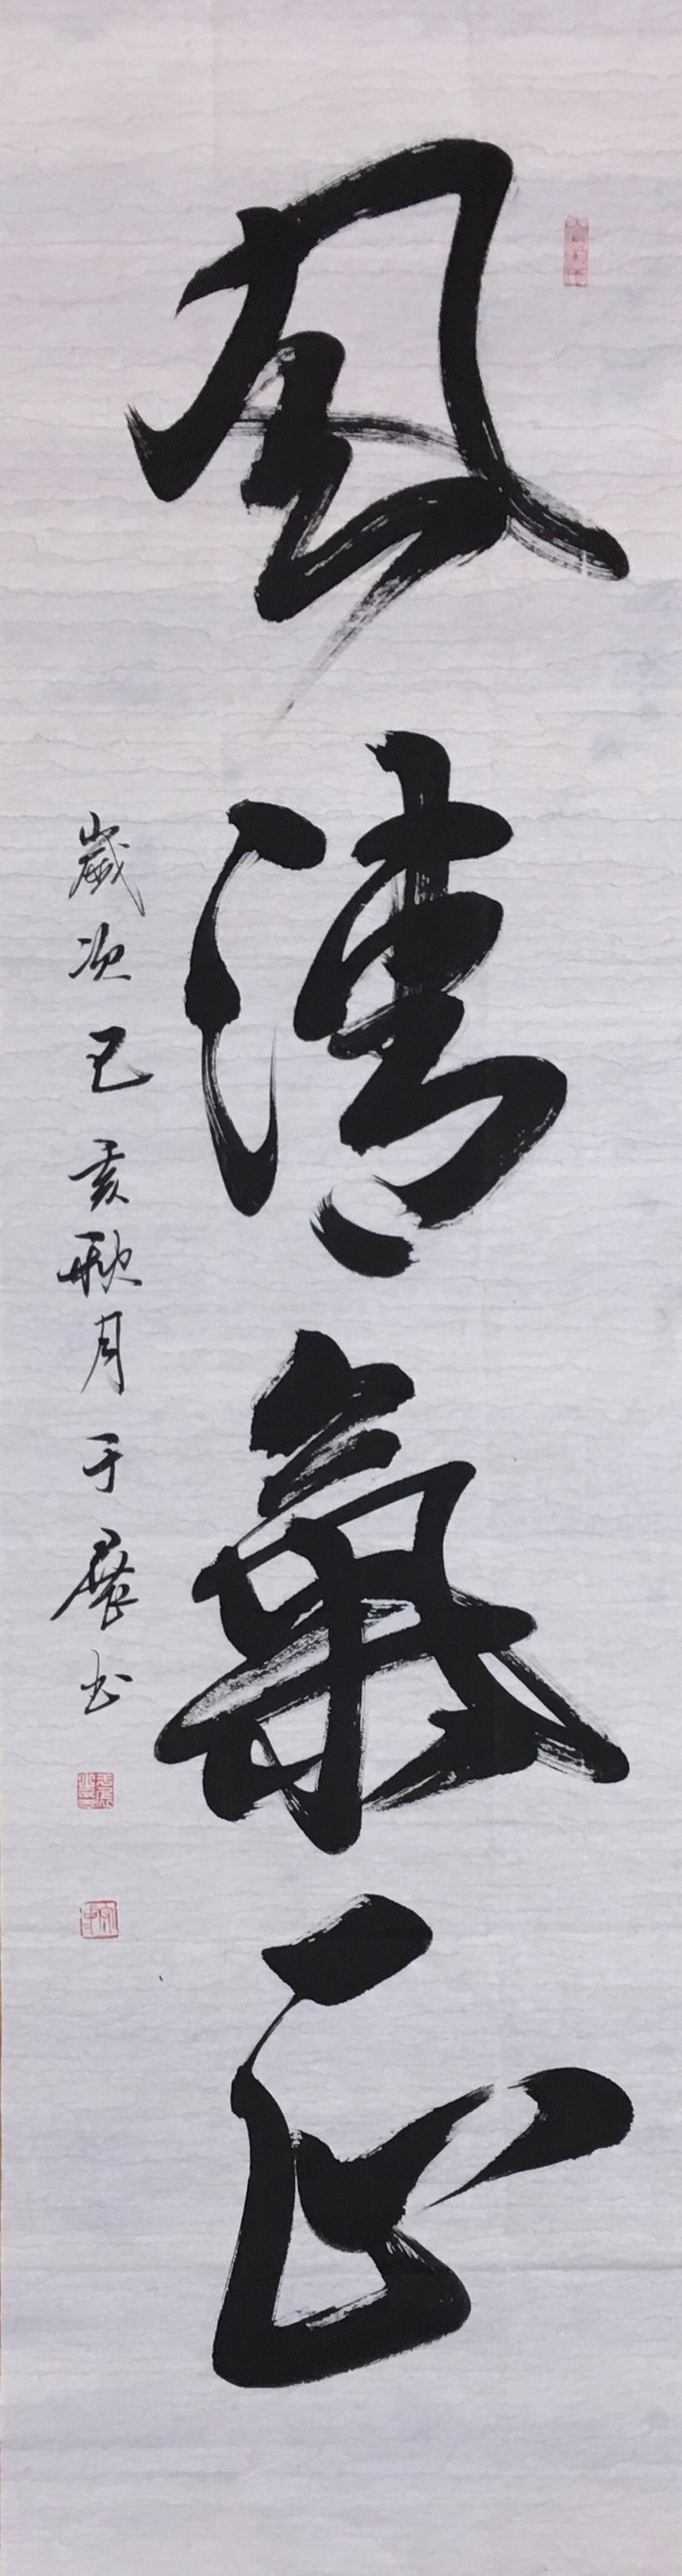 風清氣正
歲次己亥秋月于晨书